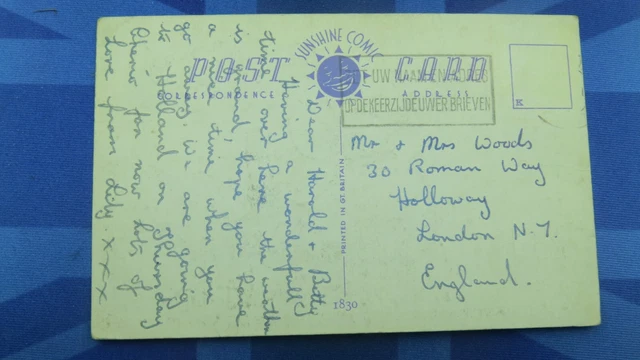 SUNSHINE COMIC
POST CARD
CORRESPONDENCE
ADDRESS
K
UW NAAM EN ADRES
OP DE KEERZIJDE UWER BRIEVEN
Dear Harold & Betty
Having a wonderfull
time over here the weather
is grand, hope you have
a nice time when you
go away. We are going
to Holland on Thursday
Cheerio for now lots of
Love from Lily. x x x
PRINTED IN GT. BRITAIN
1830
Mr & Mrs Woods
30 Roman Way
Holloway
London N.7.
England.